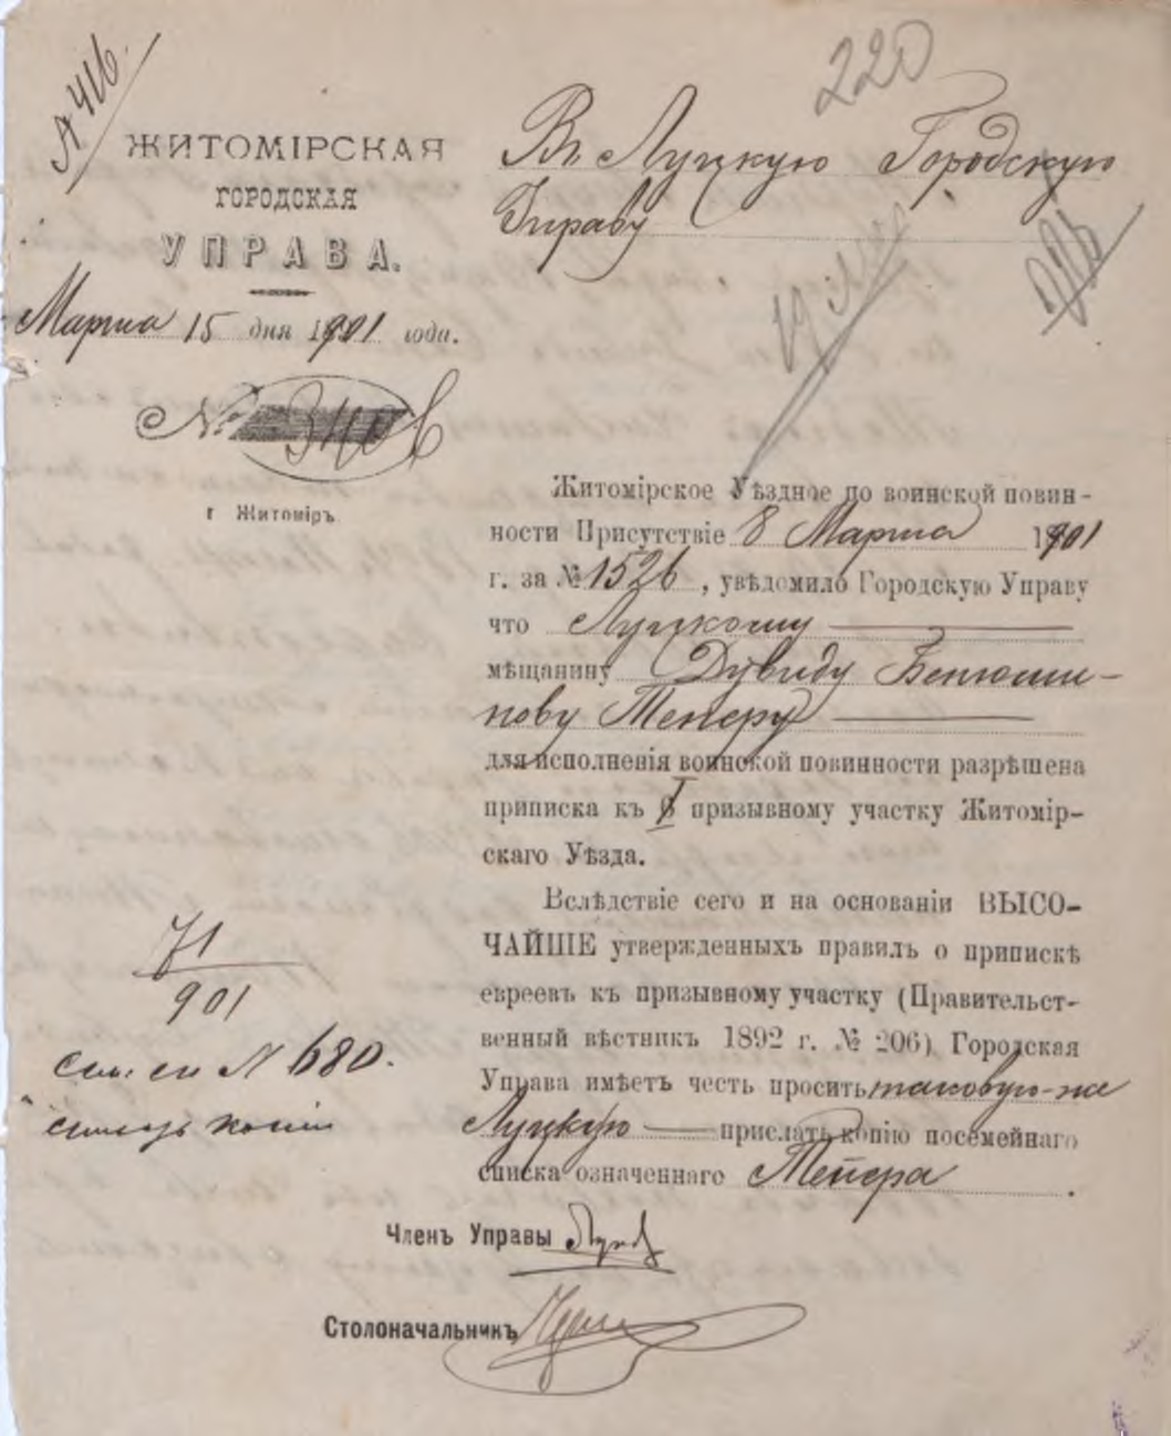 220
А 416.
ЖИТОМІРСКАЯ
ГОРОДСКАЯ
УПРАВА.
Марта 15 дня 1901 года.
№ 3408
г Житоміръ
Въ Луцкую Городскую
Управу
Житомірское Уѣздное по воинской повин-
ности Присутствіе 8 Марта 1901
г. за № 1526, увѣдомило Городскую Управу
что Луцкому
мѣщанину Дувиду Бенюми-
нову Теперу
для исполненія воинской повинности разрѣшена
приписка къ I призывному участку Житомір-
скаго Уѣзда.
Вслѣдствіе сего и на основаніи ВЫСО-
ЧАЙШЕ утвержденныхъ правилъ о припискѣ
евреевъ къ призывному участку (Правительст-
венный вѣстникъ 1892 г. № 206) Городская
Управа имѣетъ честь просить таковую-же
Луцкую прислать копію посемейнаго
списка означеннаго Тепера.
71
901
680.
копіи
Членъ Управы
Столоначальникъ